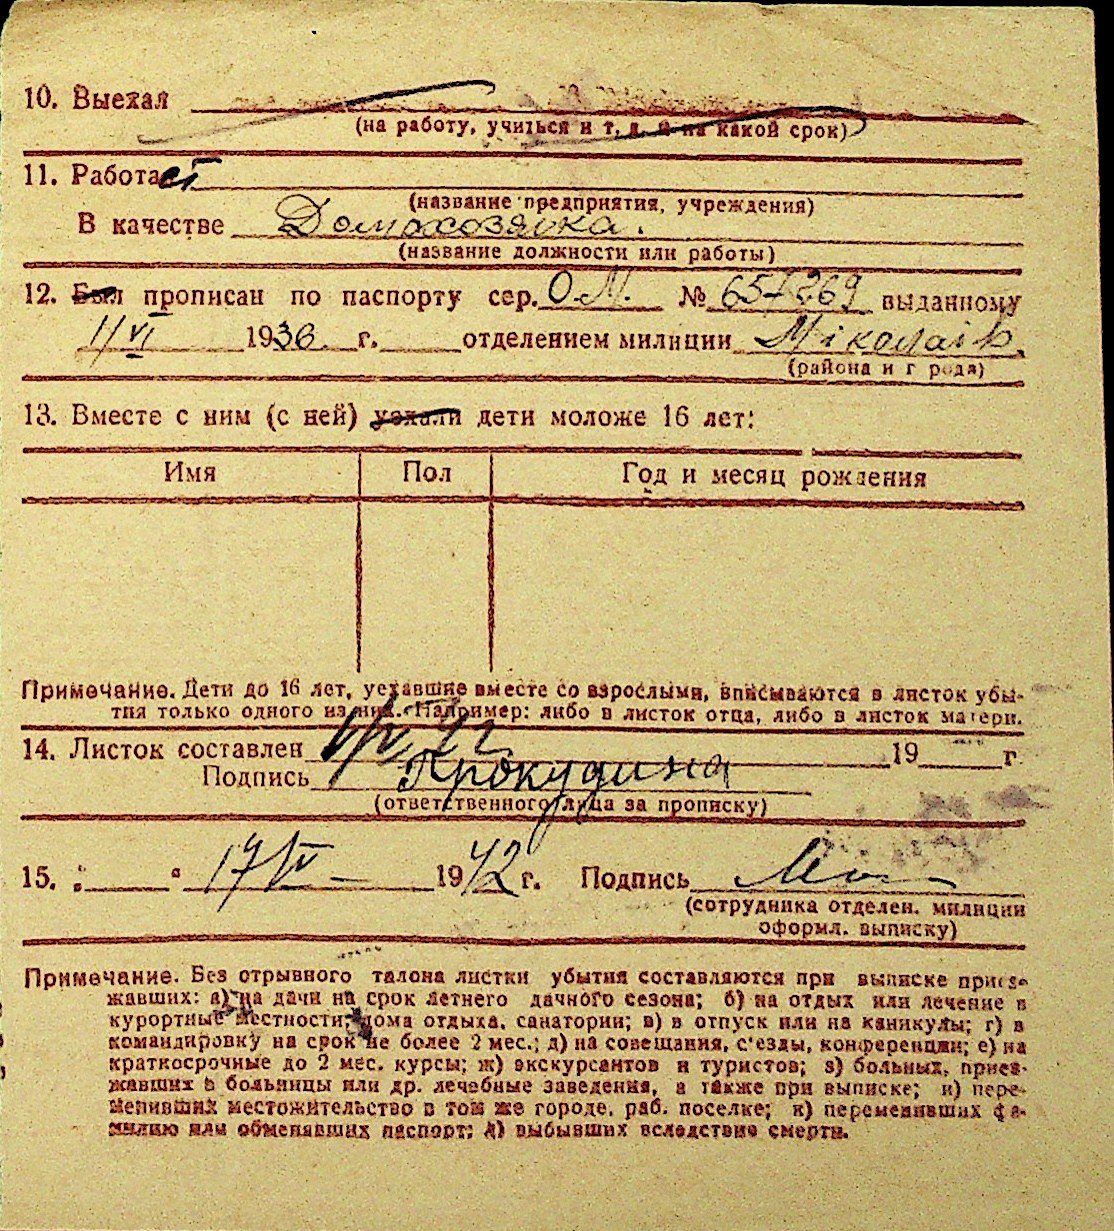 10. Выехал
(на работу, учиться и т. д. и на какой срок)
11. Работает
(название предприятия, учреждения)
В качестве Домохозяйка.
(название должности или работы)
12. Был прописан по паспорту сер. О.М. № 657269 выданному
1/VI 1936 г. отделением милиции Міколаів
(района и г рода)
13. Вместе с ним (с ней) уехали дети моложе 16 лет:
Имя Пол Год и месяц рождения
Примечание. Дети до 16 лет, уехавшие вместе со взрослыми, вписываются в листок убы-
тия только одного из них. Например: либо в листок отца, либо в листок матери.
14. Листок составлен 19 г
Подпись Прокудина
(ответственного лица за прописку)
15. 17/IV 1942 г. Подпись
(сотрудника отделен. милиции
оформл. выписку)
Примечание. Без отрывного талона листки убытия составляются при выписке приез-
жавших: а) на дачи на срок летнего дачного сезона; б) на отдых или лечение в
курортные местности, дома отдыха, санатории; в) в отпуск или на каникулы; г) в
командировку на срок не более 2 мес.; д) на совещания, с'езды, конференции; е) на
краткосрочные до 2 мес. курсы; ж) экскурсантов и туристов; з) больных, приез-
жавших в больницы или др. лечебные заведения, а также при выписке; и) пере-
менивших местожительство в том же городе, раб. поселке; к) переменивших фа-
милию или обменявших паспорт; л) выбывших вследствие смерти.